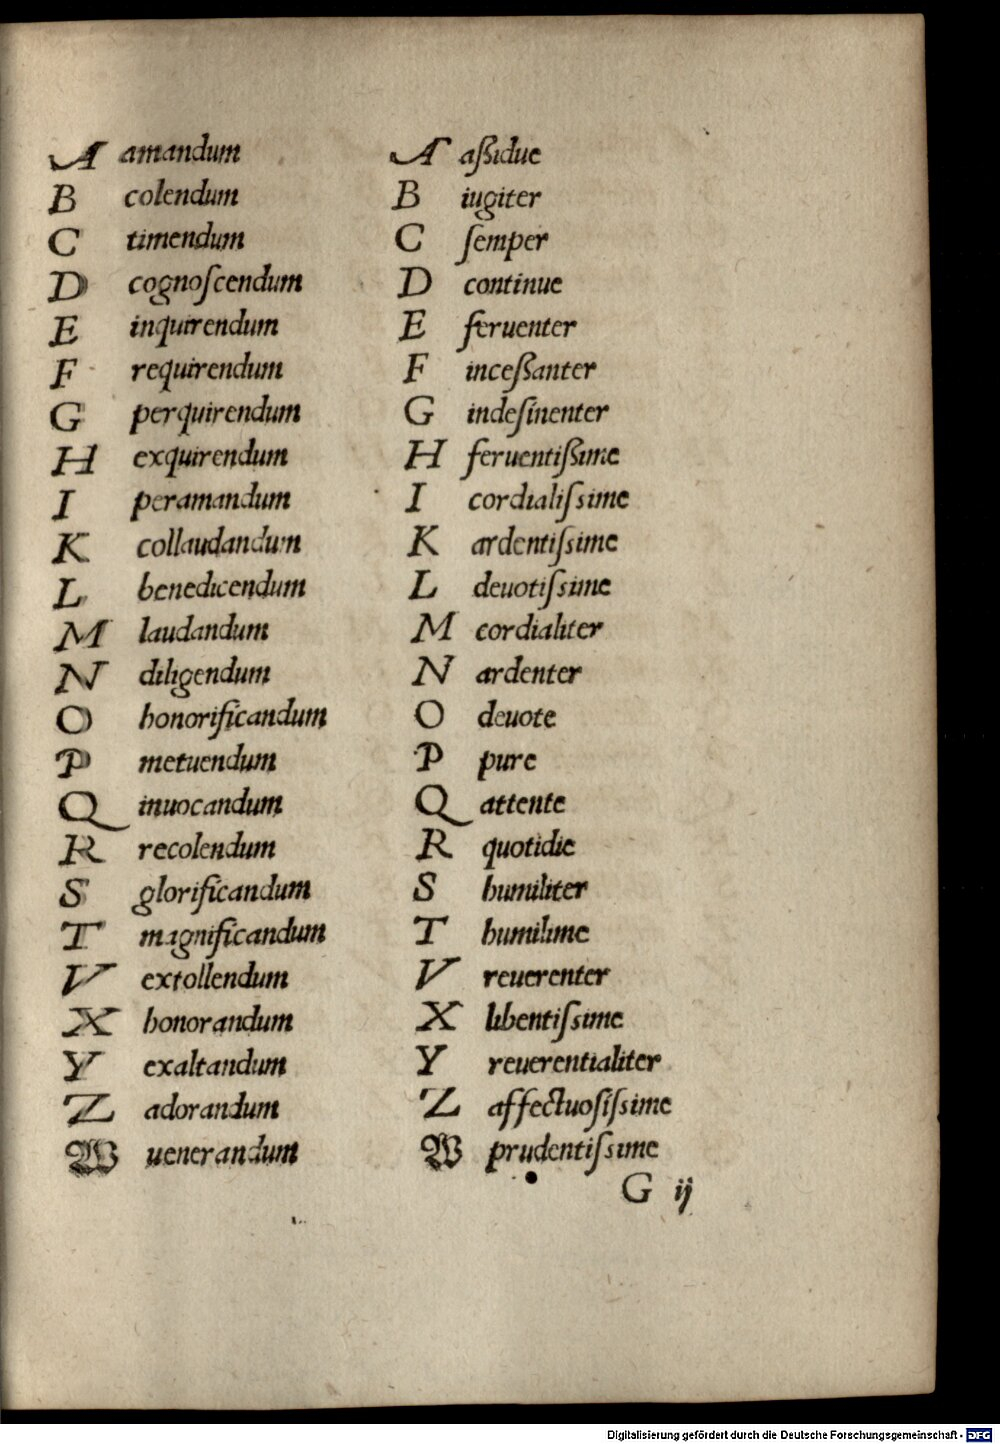 A amandum
B colendum
C timendum
D cognoſcendum
E inquirendum
F requirendum
G perquirendum
H exquirendum
I peramandum
K collaudandum
L benedicendum
M laudandum
N diligendum
O honorificandum
P metuendum
Q inuocandum
R recolendum
S glorificandum
T magnificandum
V extollendum
X honorandum
Y exaltandum
Z adorandum
W uenerandum
A aßidue
B iugiter
C ſemper
D continue
E feruenter
F inceßanter
G indeſinenter
H feruentißime
I cordialiſsime
K ardentiſsime
L deuotiſsime
M cordialiter
N ardenter
O deuote
P pure
Q attente
R quotidie
S humiliter
T humilime
V reuerenter
X libentiſsime
Y reuerentialiter
Z affectuoſiſsime
W prudentiſsime
G ij
Digitalisierung gefördert durch die Deutsche Forschungsgemeinschaft - DFG